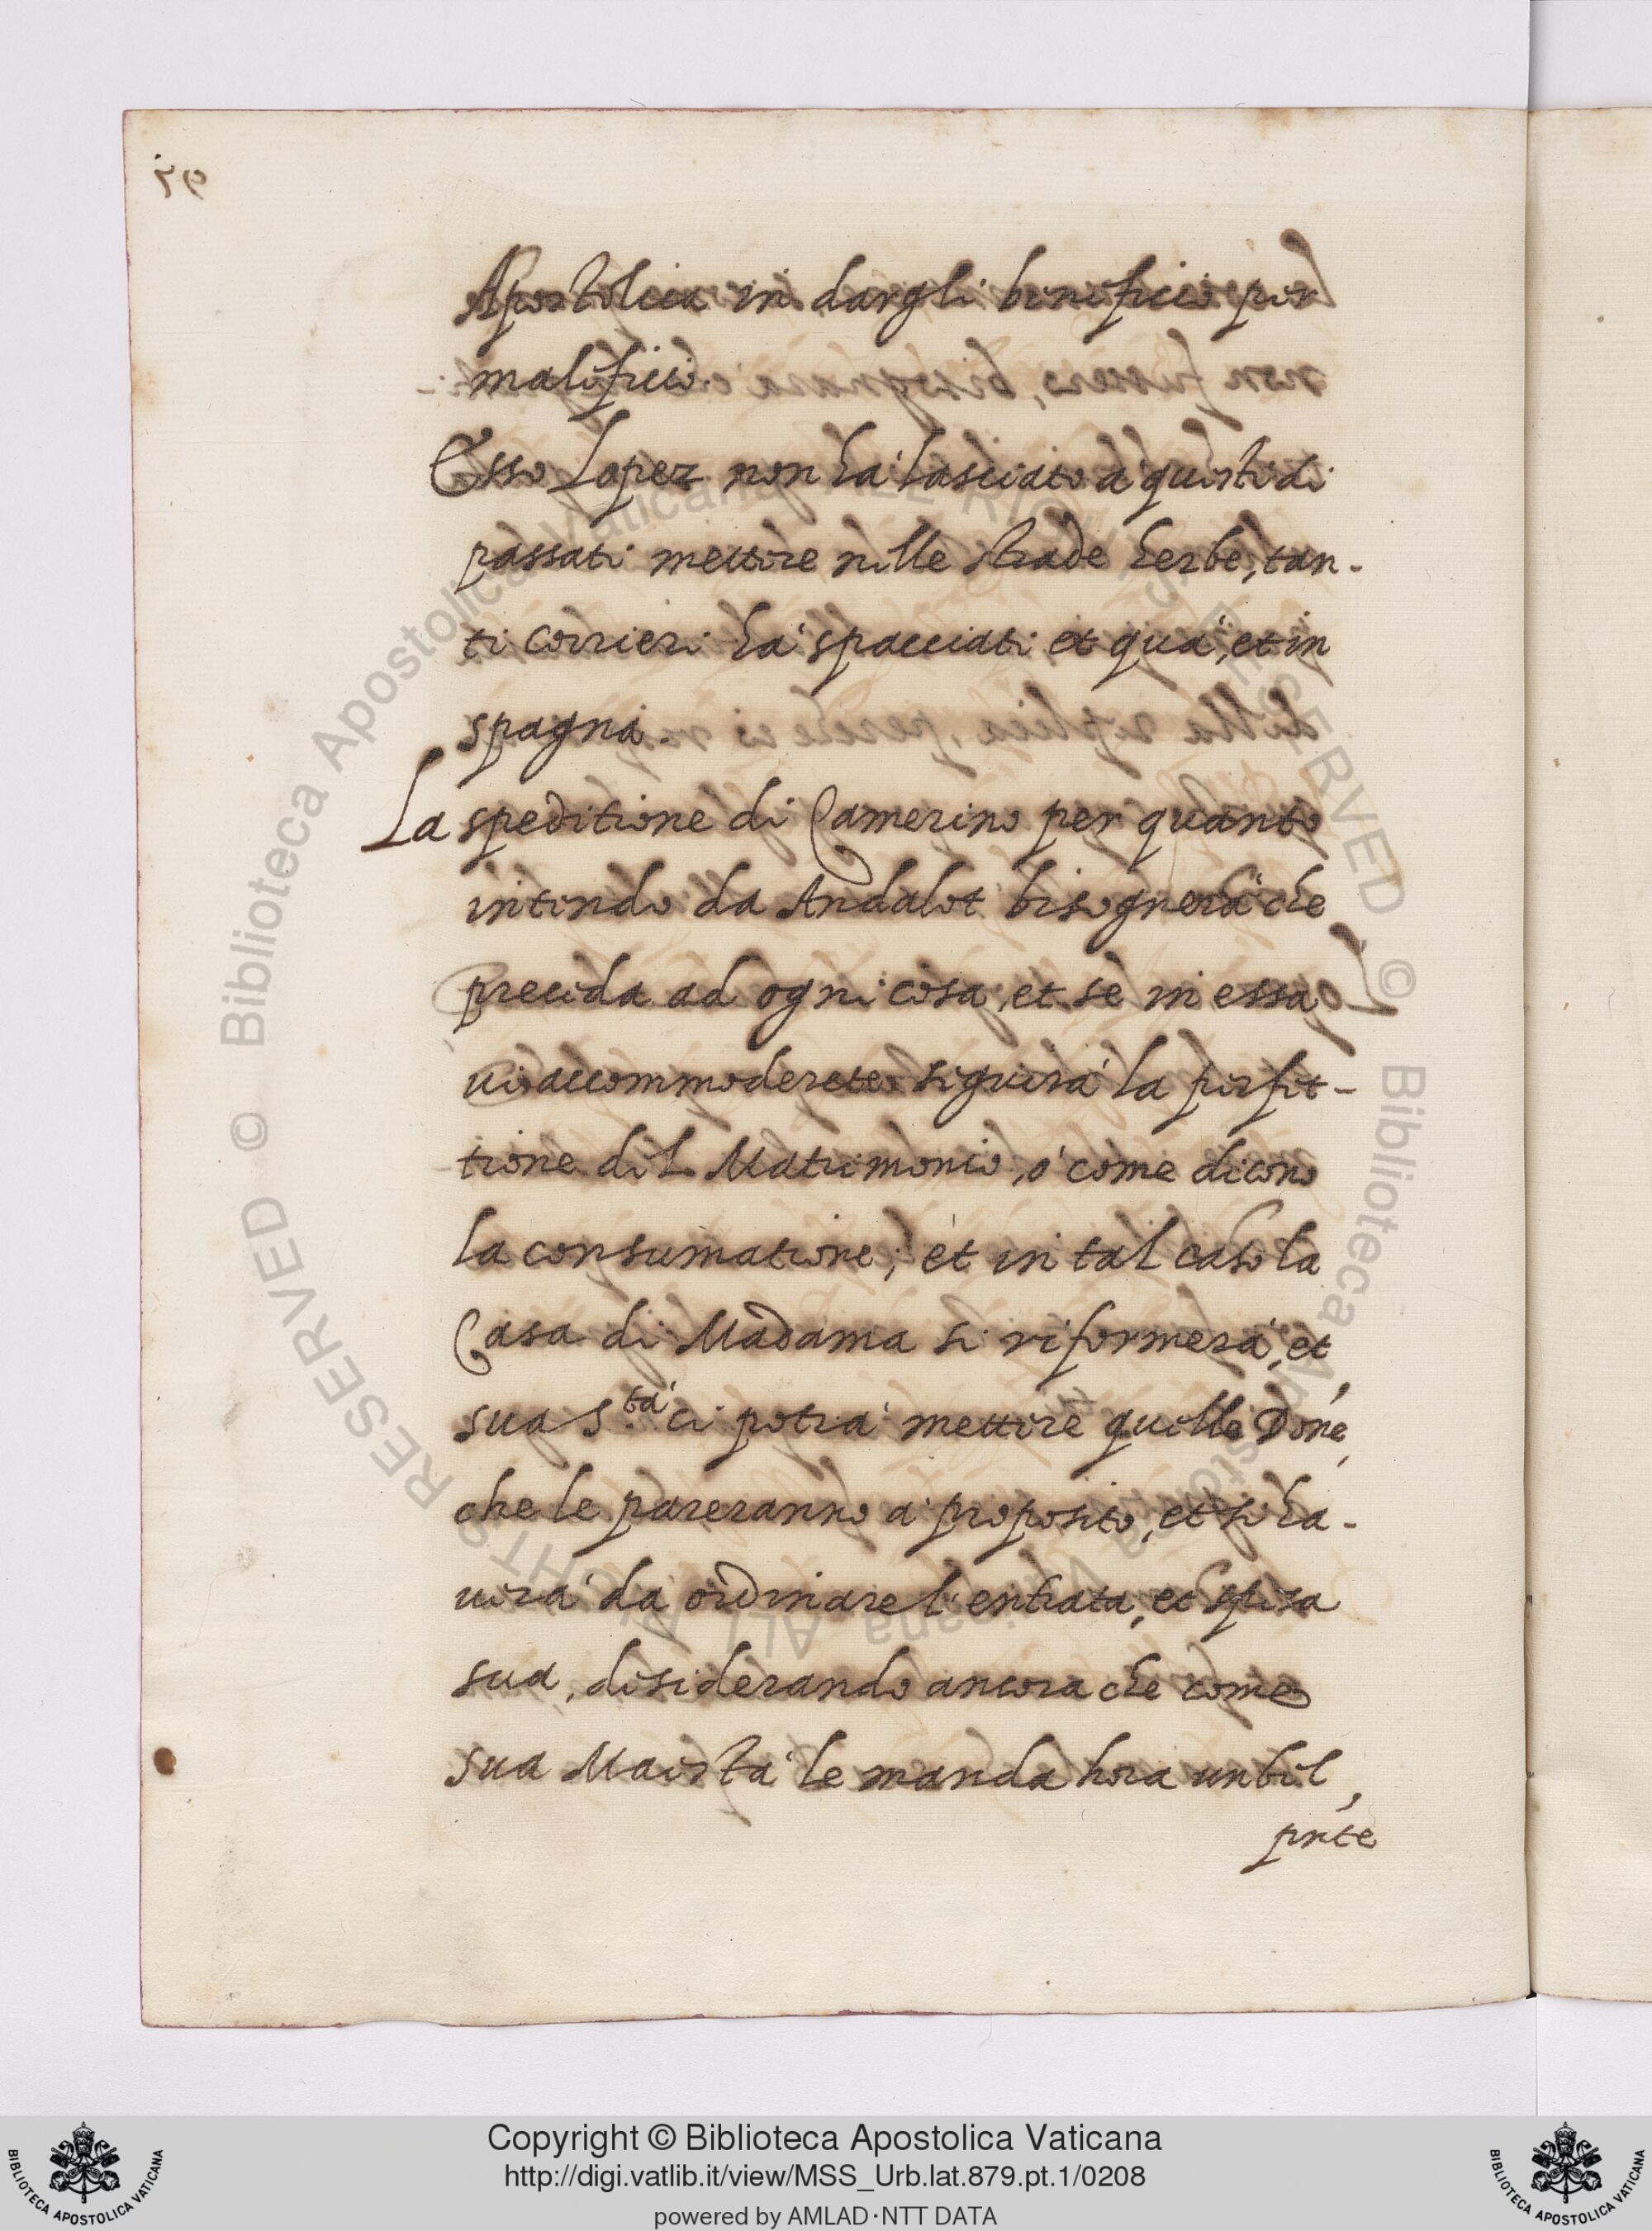 Apostolica in dargli beneficio per
maleficio.
Esso Lopez non ha' lasciato a' questi di
passati mettere nelle strade herbe, tan-
ti corrieri ha' spacciati et qua', et in
spagna.
La speditione di Camerino per quanto
intendo da Andalot bisognera' che
preceda ad ogni cosa, et se in essa
vi accommoderete seguira' la perfet-
tione del Matrimonio, o' come dicono
la consumatione; et in tal caso la
Casa di Madama si riformera', et
sua S.ta' ci potra' mettere quelle Done,
che le pareranno a' proposito, et si ha-
vera' da ordinare l'entrata, et spesa
sua, desiderando ancora che come
sua Maesta' le manda hora un bel
pnte
Copyright © Biblioteca Apostolica Vaticana
http://digi.vatlib.it/view/MSS_Urb.lat.879.pt.1/0208
powered by AMLAD·NTT DATA
BIBLIOTECA APOSTOLICA VATICANA
BIBLIOTECA APOSTOLICA VATICANA